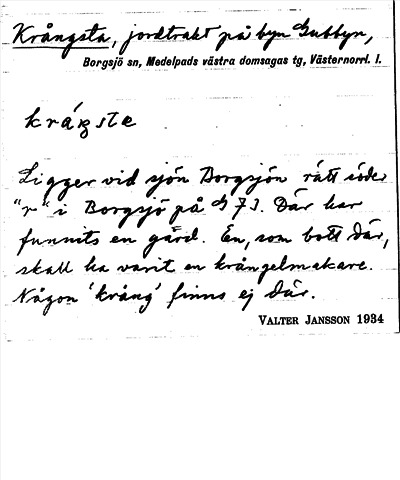 Krångsta, jordtrakt på byn Gubbyn,
Borgsjö sn, Medelpads västra domsagas tg, Västernorrl. l.
kråŋste
Ligger vid sjön Borgsjön rätt söder
"r" i Borgsjö på G 73. Där har
funnits en gård. En, som bott där,
skall ha varit en krångelmakare.
Någon 'krång' finns ej där.
VALTER JANSSON 1934